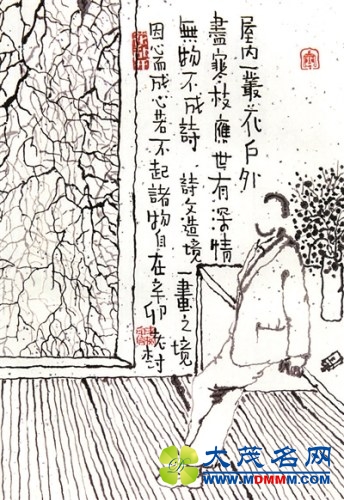 屋内一叢花戶外
盡寒枝應世有深情
無物不成詩 詩文造境一畫之境
因心而成心若不起諸物自在辛卯老村
大茂名网
www.MDMMM.com